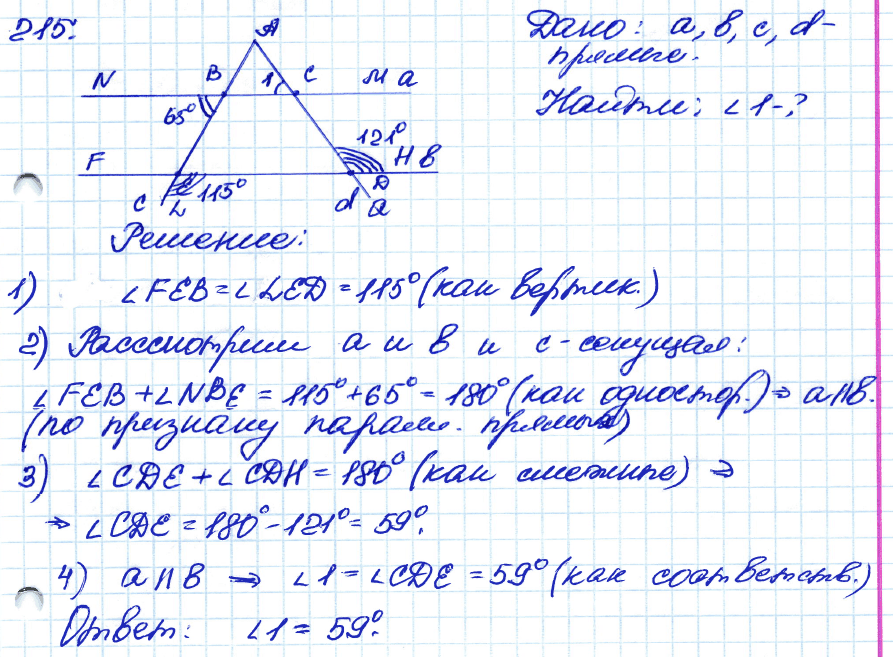 215.
Дано: a, b, c, d -
прямые.
Найти: ∠1-?
A
N B 1 C M a
65°
121°
F H b
C L 115° d D a
Решение:
1) ∠FEB = ∠LED = 115° (как вертик.)
2) Рассмотрим a и b и c - секущая:
∠FEB + ∠NBE = 115° + 65° = 180° (как одностор.) ⇒ a || b.
(по признаку паралл. прямых)
3) ∠CDE + ∠CDH = 180° (как смежные) ⇒
⇒ ∠CDE = 180° - 121° = 59°.
4) a || b ⇒ ∠1 = ∠CDE = 59° (как соответств.)
Ответ: ∠1 = 59°.